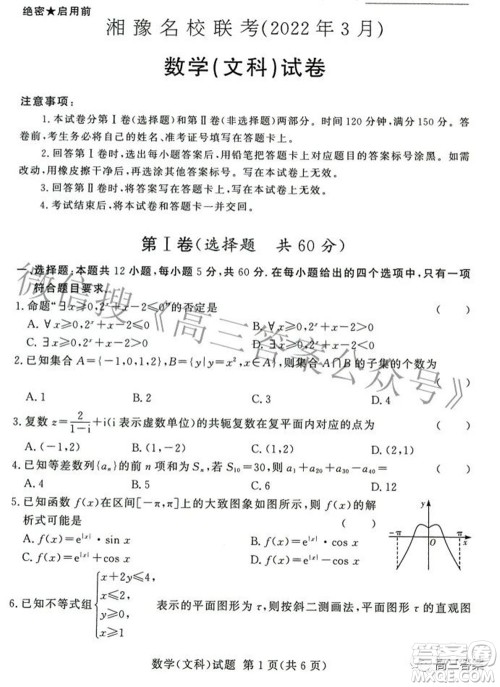 绝密★启用前
湘豫名校联考(2022年3月)
数学(文科)试卷
注意事项:
1.本试卷分第Ⅰ卷(选择题)和第Ⅱ卷(非选择题)两部分。时间120分钟,满分150分。答
卷前,考生务必将自己的姓名、准考证号填写在答题卡上。
2.回答第Ⅰ卷时,选出每小题答案后,用铅笔把答题卡上对应题目的答案标号涂黑。如需
改动,用橡皮擦干净后,再选涂其他答案标号。写在本试卷上无效。
3.回答第Ⅱ卷时,将答案写在答题卡上,写在本试卷上无效。
4.考试结束后,将本试卷和答题卡一并交回。
第Ⅰ卷(选择题 共60分)
一、选择题:本题共12小题,每小题5分,共60分。在每小题给出的四个选项中,只有一项
符合题目要求。
1.命题“∃x≥0,2ˣ+x-2≤0”的否定是 ( )
A.∀x≥0,2ˣ+x-2>0 B.∀x≥0,2ˣ+x-2≤0
C.∃x≥0,2ˣ+x-2>0
2.已知集合A={-1,0,1,2},B={y|y=x²,x∈A},则集合A∩B的子集的个数为 ( )
A.1 B.2 C.4
3.复数z=2/(1-i)+i(i表示虚数单位)的共轭复数在复平面内对应的点为 ( )
A.(-1,2) B.(1,-2) C.(1,2)
4.已知等差数列{aₙ}的前n项和为Sₙ,若S₁₀=30,则a₁+a₄+a₈+ ( )
A.4 B.6 C.8 D.12
5.已知函数f(x)在区间[-π,π]上的大致图象如图所示,则f(x)的解
析式可能是 ( )
A.f(x)=e^|x|·sin x
C.f(x)=e^|x|+cos x
y
-π O π x
6.已知不等式组{x+2y≤4, y≥0, x≥1}表示的平面图形为τ,则按斜二测画法,平面图形τ的直观图
数学(文科)试题 第1页(共6页)
微信搜《高三答案公众号》
高三答案